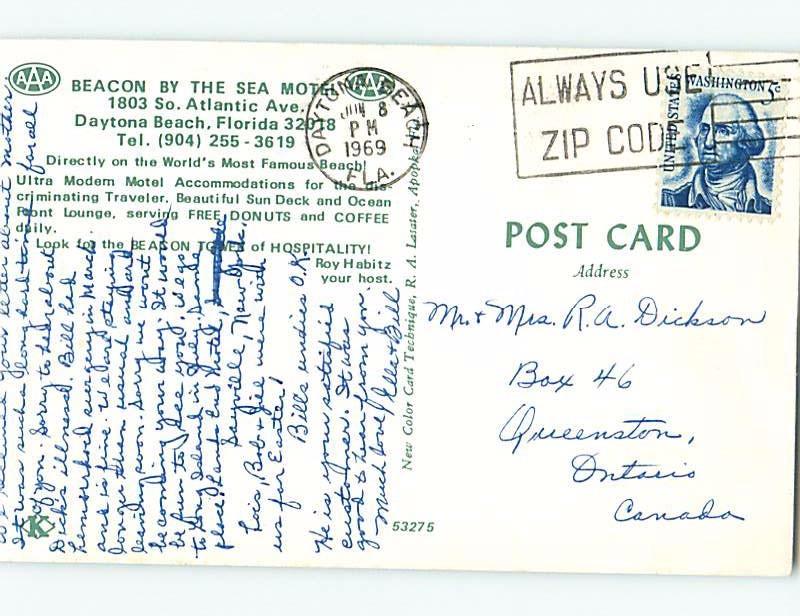 AAA
AAA
BEACON BY THE SEA MOTEL
1803 So. Atlantic Ave.
Daytona Beach, Florida 32018
Tel. (904) 255-3619
Directly on the World's Most Famous Beach!
Ultra Modern Motel Accommodations for the dis-
criminating Traveler. Beautiful Sun Deck and Ocean
Front Lounge, serving FREE DONUTS and COFFEE
daily.
Look for the BEACON TOWER of HOSPITALITY!
Roy Habitz
your host.
received your letter about Mother.
It was such a long hard time for all
of you. Sorry to hear about
Dick's illness. Bill had
hemorrhoid surgery in March
and is fine. We are staying
longer than usual and are
leaving soon. Sorry we won't
be coming your way. It would
be fun to see you, we go
to Long Island in July,
place. Motel,
Sayville, New York.
Lois, Bob & Jill were with
us for Easter!
Bills undies O.K.
He is your satisfied
customer. It was
good to hear from you.
Much love, & Bill
K
New Color Card Technique, R. A. Lasster, Apopka, Fla.
53275
DAYTONA BEACH
JUN 8
PM
1969
FLA.
ALWAYS USE
ZIP CODE
WASHINGTON 5c
UNITED STATES
POST CARD
Address
Mr. & Mrs. R.A. Dickson
Box 46
Queenston,
Ontario
Canada